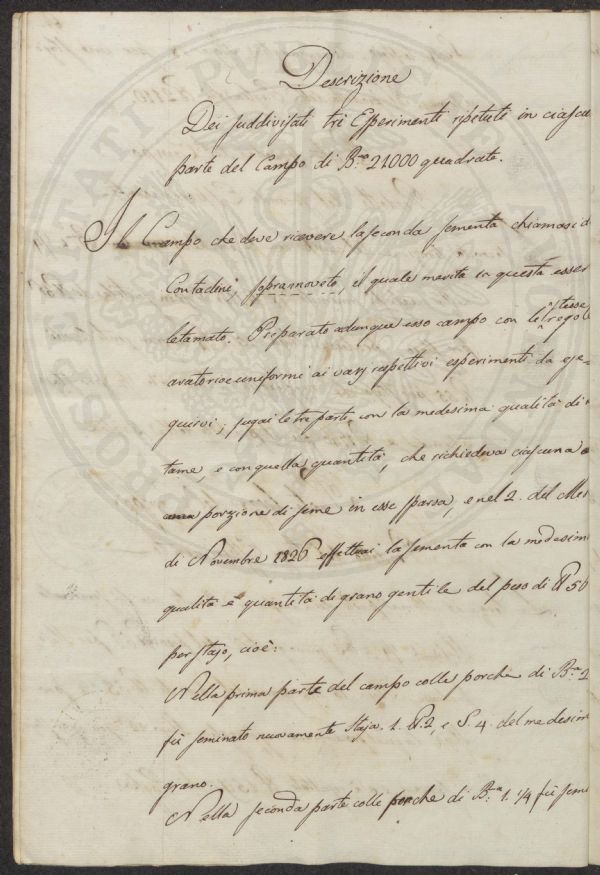 Descrizione
Dei suddivisati tri Esperimenti ripetuti in ciascu
parte del Campo di B.ra 21000 quadrate.
Il Campo che deve ricevere la seconda sementa chiamasi d
Contadini, soprannoveto, il quale merita in questa esser
letamato. Preparato adunque esso campo con le stesse regole
aratorie e uniformi ai varj respettivi esperimenti da ese=
guirvi, sugai le tre parti con la medesima qualità di
tame, e con quella quantità, che richiedeva ciascuna
porzione di seme in esse sparsa, e nel 2. del Mes
di Novembre 1826 effettuai la sementa con la medesim
qualità e quantità di grano gentile del peso di 50
per stajo, cioè:
Nella prima parte del campo colle porche di B.ra 2
fù seminato nuovamente Staja. 1. 2. e S. 4. del medesim
grano.
Nella seconda parte colle porche di B.ra 1. 1/4 fù semi